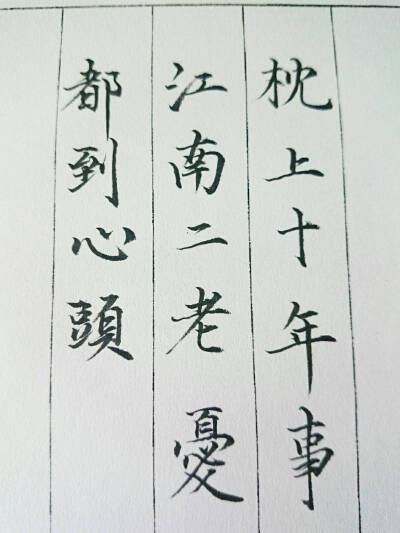 枕上十年事
江南二老憂
都到心頭